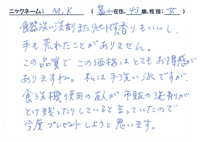 ニックネーム: M.K (富山在住, 43歳, 性別: 女)
食器洗い洗剤またリピートです。香りもいいし、
手も荒れたことがありません。
この品質でこの価格はとてもお得感が
ありますね。私は手洗い派ですが、
食洗機使用の友人が市販の洗剤がひ
とけ残ったりしていると言っていたので
今度プレゼントしようと思います。